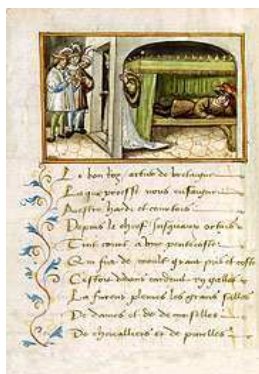 Le bon roy artus de bretaigne
La que proesse nous ensaigne
A estre hardi et courtois
Depuis le chief jusquaux
Tint court a une pentecoste
Qui fut de moult grant pris et coste
Cestoit dedans carduel galles
La furent plenes les grans salles
De dames et de damoiselles
De chevalliers et de pucelles